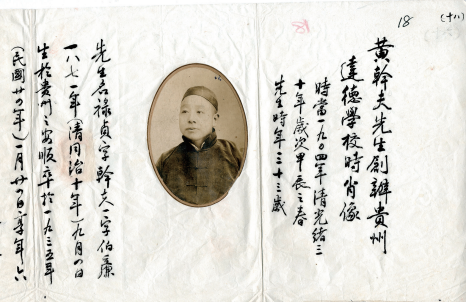 (十八)
18
黃幹夫先生創辦貴州
達德學校時肖像
時當一九〇四年清光緒三
十年歲次甲辰之春
先生時年三十三歲
先生名祿貞字幹夫一字伯廉
一八七一年(清同治十年)九月日
生於貴州之安順卒於一九三五年
(民國廿四年)一月廿日享年六